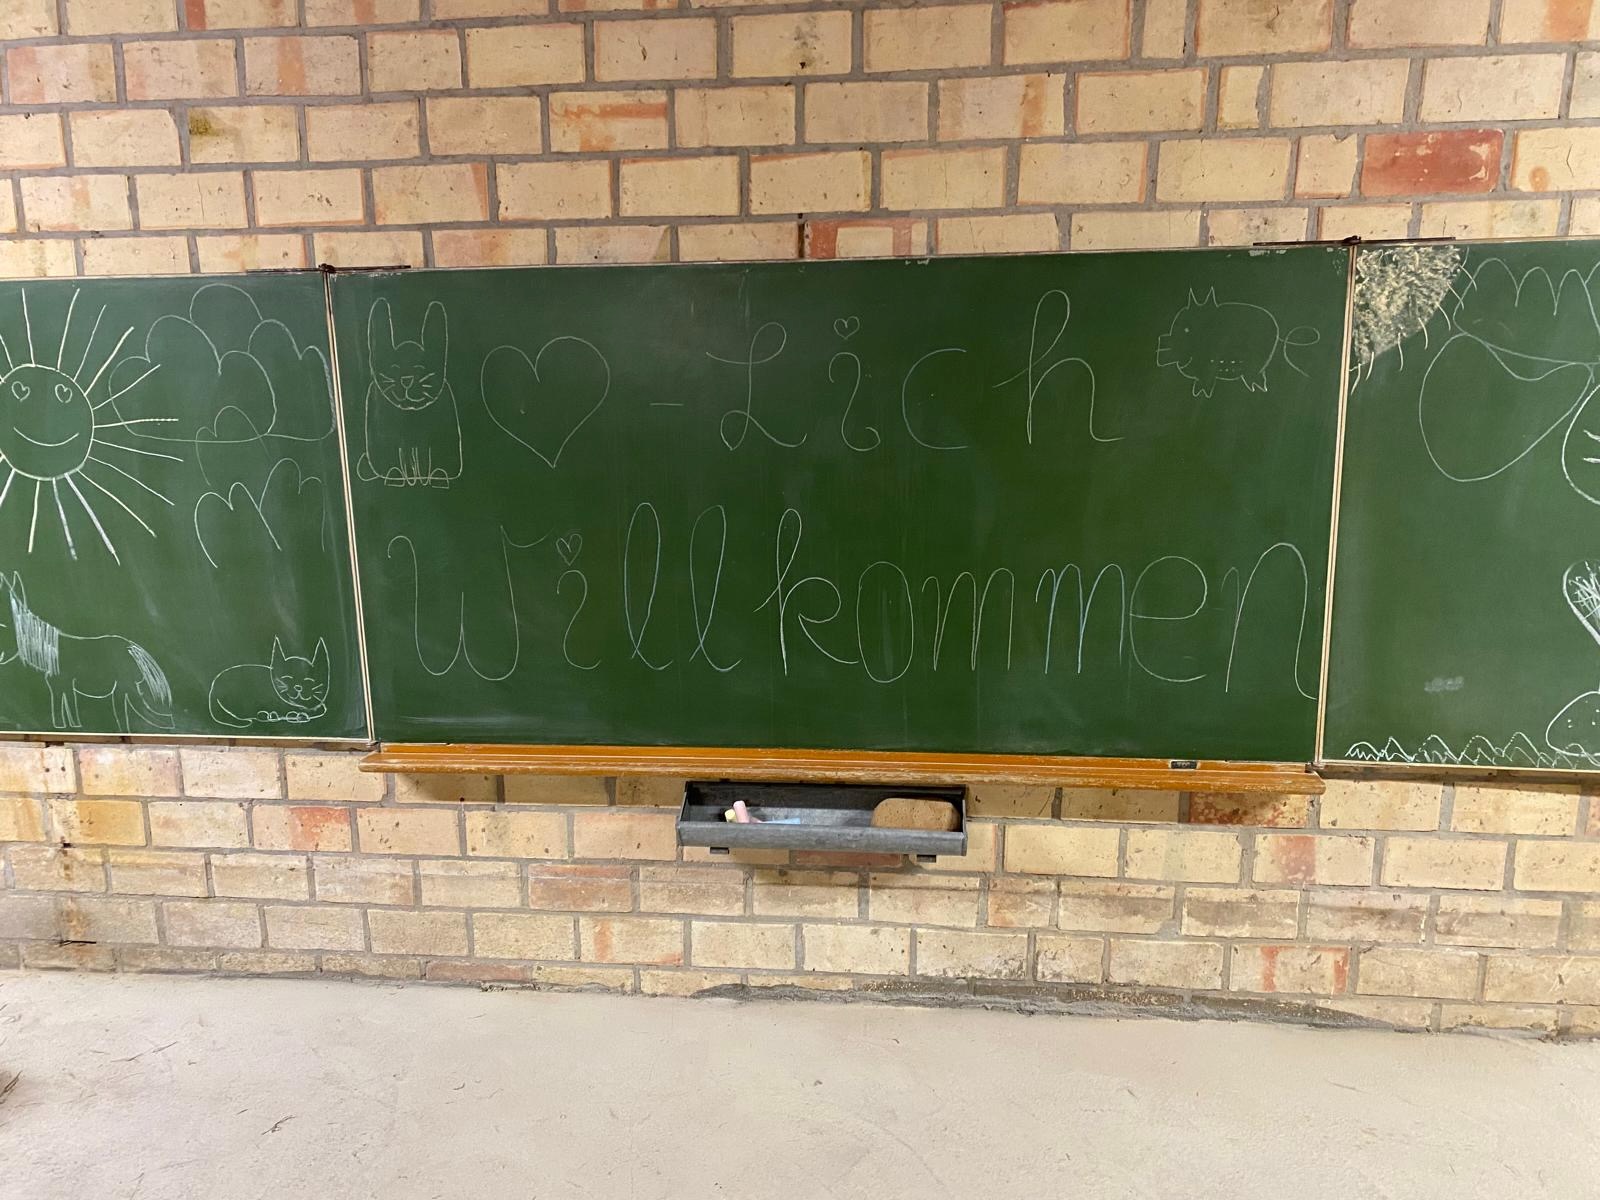 ♥-Lich
Willkommen